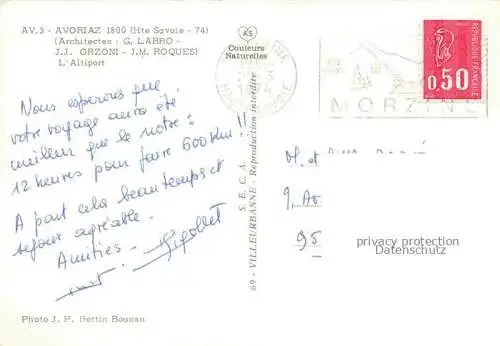 AV.3 - AVORIAZ 1800 (Hte Savoie - 74)
(Architectes : G. LABRO -
J.J. ORZONI - J.M. ROQUES)
L'Altiport
AS
Couleurs
Naturelles
MORZINE
0,50
RÉPUBLIQUE FRANÇAISE
Nous espérons que
votre voyage aura été
meilleur que le notre :
12 heures pour faire 600 Km !!
A part cela beau temps et
séjour agréable.
Amitiés -
S.E.C.A.
69 - VILLEURBANNE - Reproduction interdite
M. et
95
privacy protection
Datenschutz
Photo J. P. Bertin Bounan